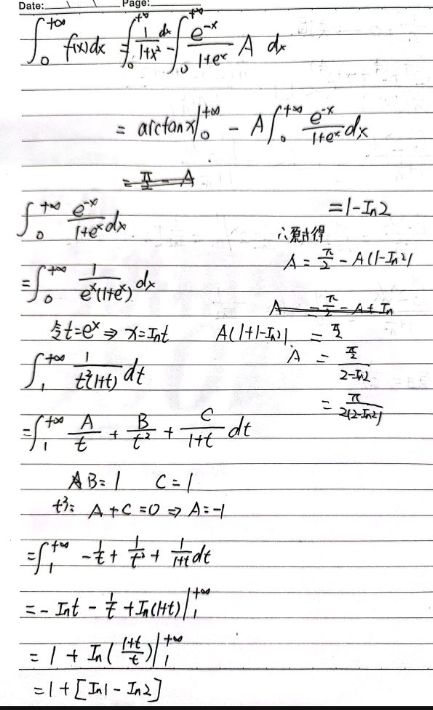 Date: Page:
∫₀^{+∞} f(x)dx = ∫₀^{+∞} 1/(1+x²) dx - ∫₀^{+∞} e^{-x}/(1+e^x) A dx
= arctanx|₀^{+∞} - A∫₀^{+∞} e^{-x}/(1+e^x) dx
= π/2 - A
∫₀^{+∞} e^{-x}/(1+e^x) dx
= ∫₀^{+∞} 1/(e^x(1+e^x)) dx
令t=e^x ⇒ x=Int
∫₁^{+∞} 1/(t²(1+t)) dt
= ∫₁^{+∞} A/t + B/t² + C/(1+t) dt
B=1 C=1
t²: A+C=0 ⇒ A=-1
= ∫₁^{+∞} -1/t + 1/t² + 1/(1+t) dt
= -Int - 1/t + In(1+t)|₁^{+∞}
= 1 + In((1+t)/t)|₁^{+∞}
= 1+[In1-In2]
=1-In2
∴原式得
A = π/2 - A(1-In2)
A = π/2 - A + In
A(1+1-In2) = π/2
A = (π/2)/(2-In2)
= π/(2(2-In2))